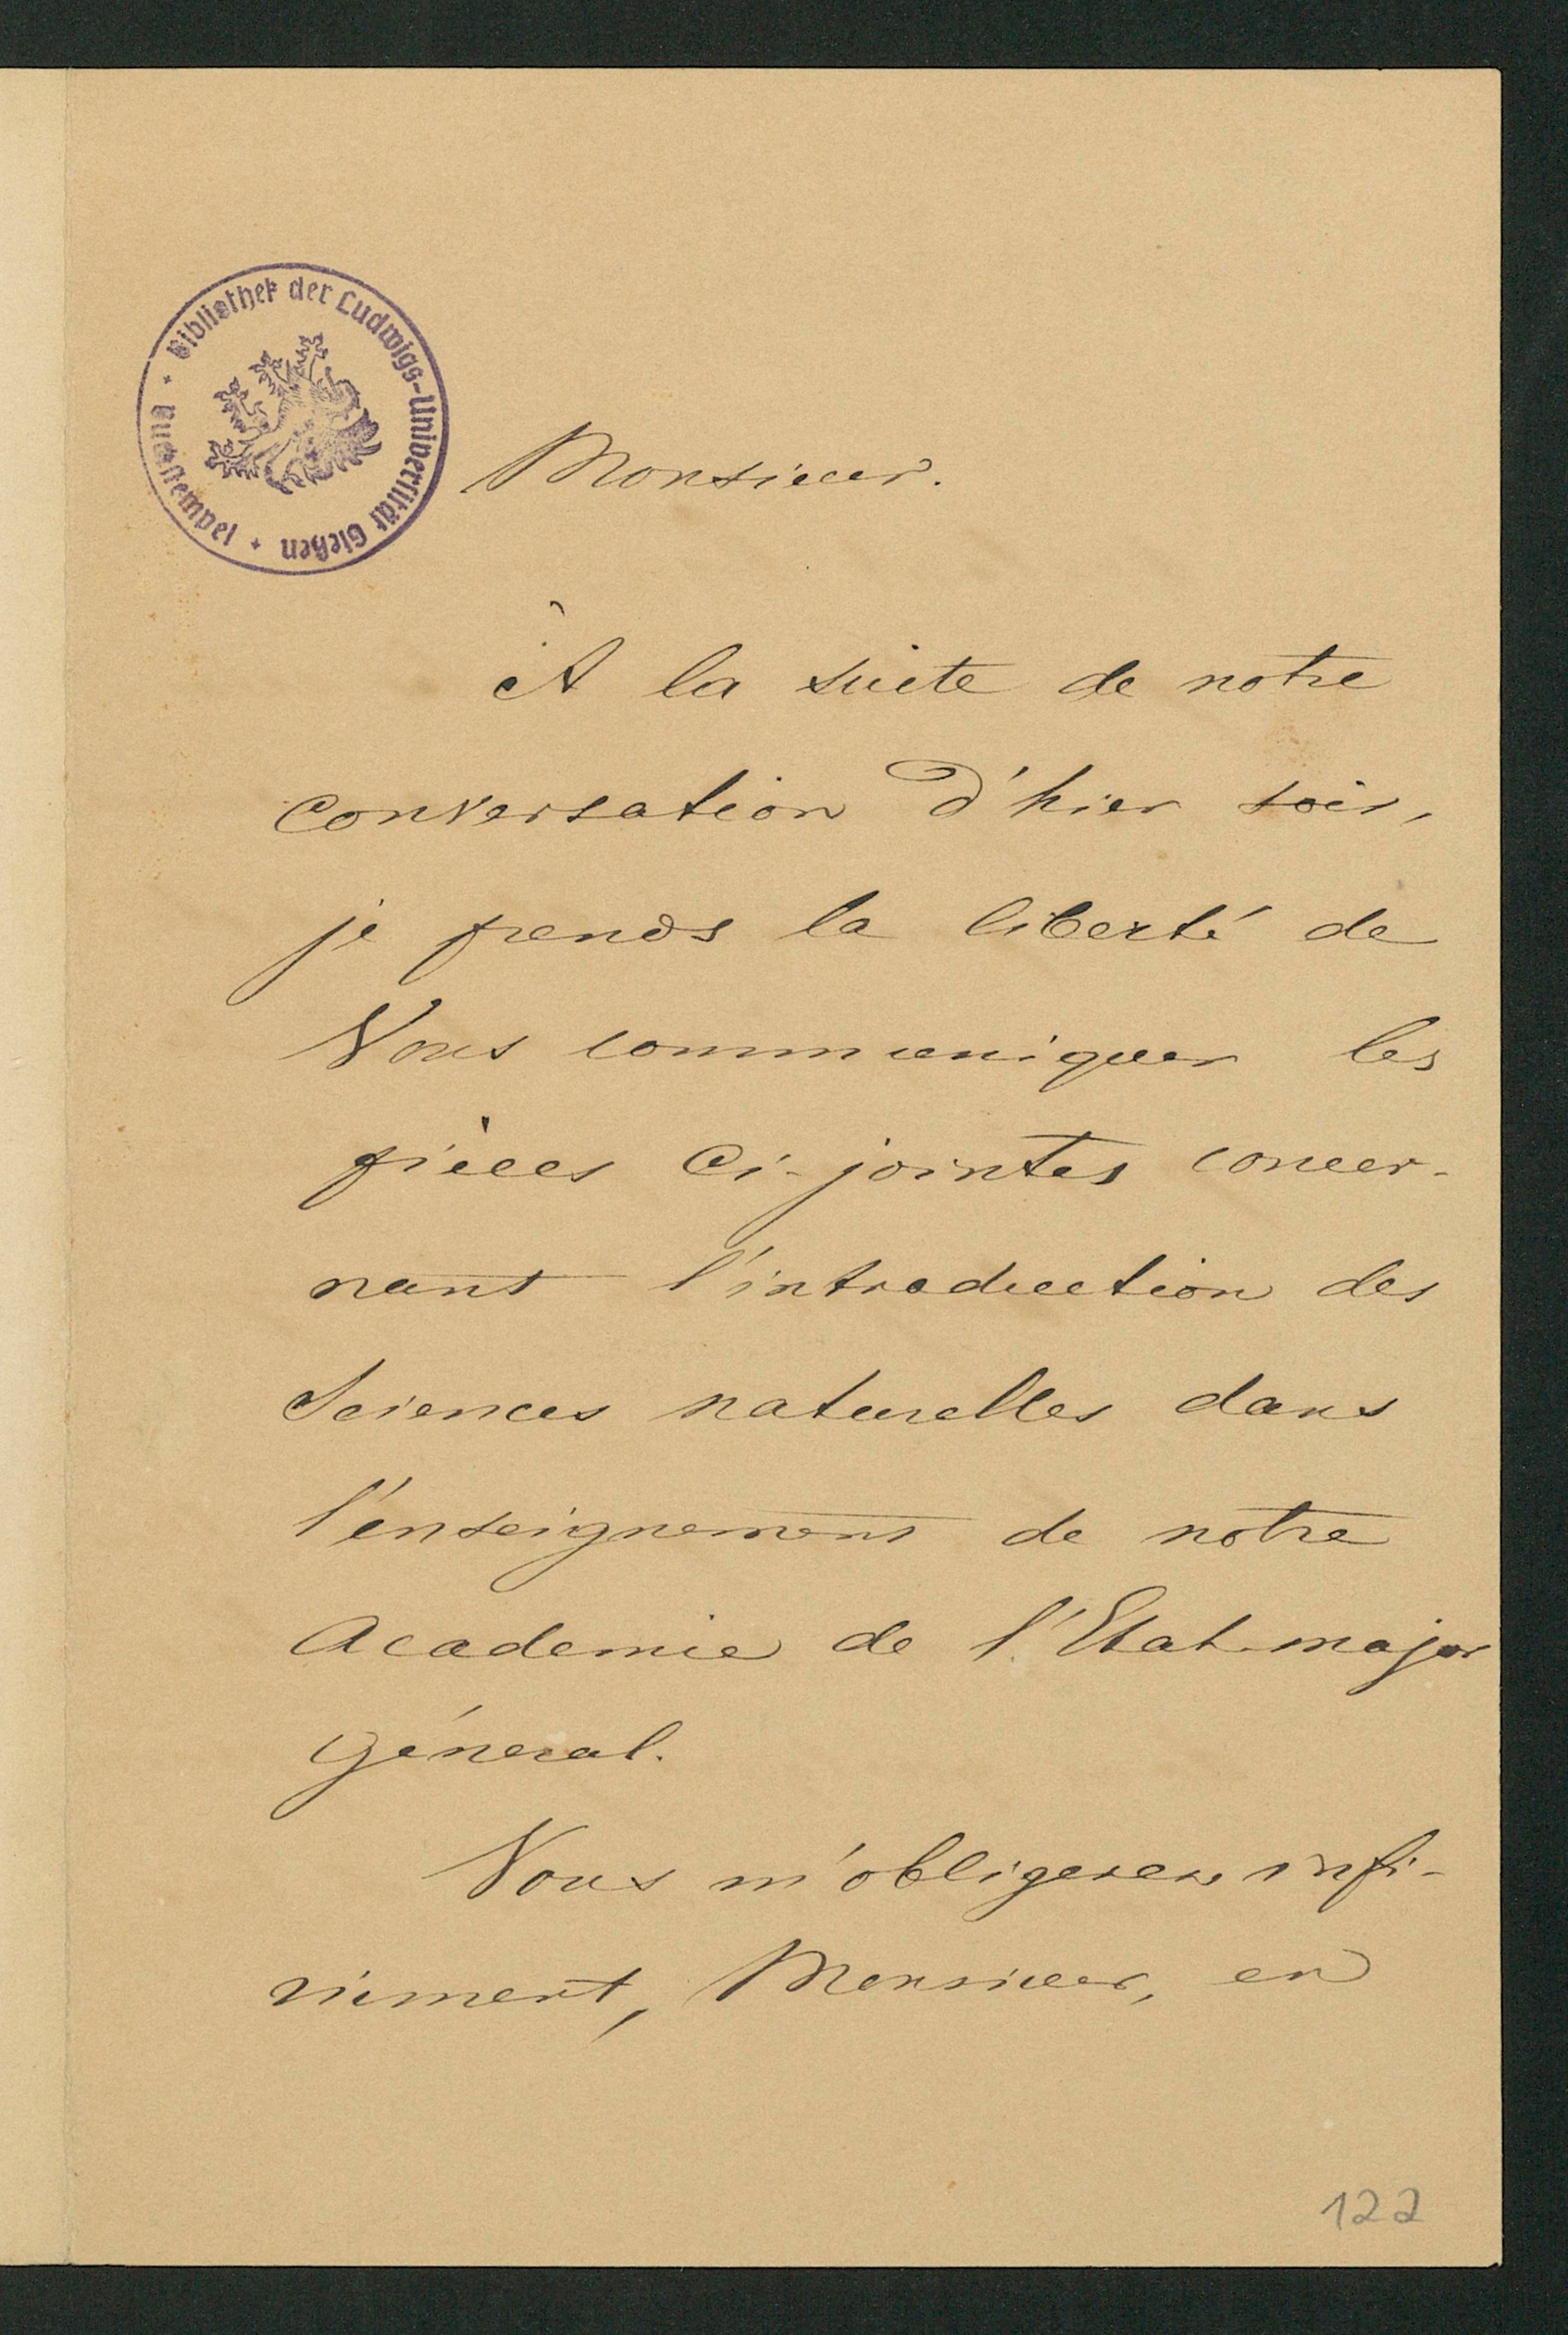 Bibliothek der Ludwigs-Universität Gießen
Amtsstempel
Monsieur.
À la suite de notre
conversation d'hier soir,
je prends la liberté de
Vous communiquer les
pièces ci-jointes concer-
nant l'introduction des
Sciences naturelles dans
l'enseignement de notre
Academie de l'Etat-major
général.
Vous m'obligerez infi-
niment, Monsieur, en
122